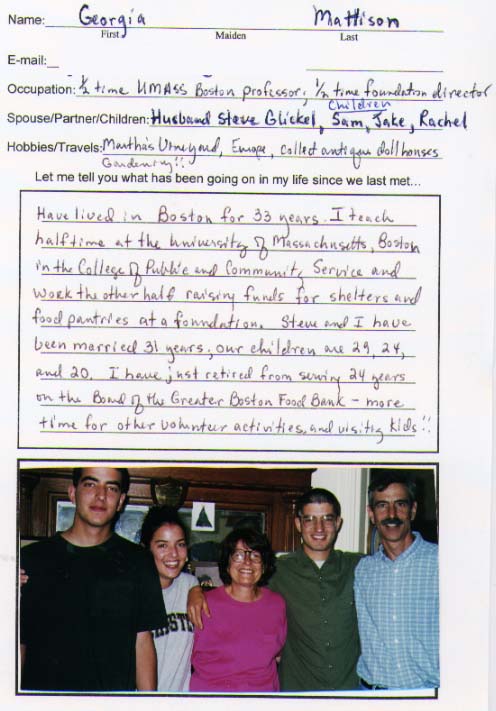 Name: Georgia Mattison
First Maiden Last
E-mail:
Occupation: 1/2 time UMASS Boston professor; 1/2 time foundation director
Children
Spouse/Partner/Children: Husband Steve Glickel, Sam, Jake, Rachel
Hobbies/Travels: Martha's Vineyard, Europe, collect antique dollhouses
Gardening!!
Let me tell you what has been going on in my life since we last met...
Have lived in Boston for 33 years. I teach
halftime at the University of Massachusetts, Boston
in the College of Public and Community Service and
work the other half raising funds for shelters and
food pantries at a foundation. Steve and I have
been married 31 years; our children are 29, 24,
and 20. I have just retired from serving 24 years
on the Board of the Greater Boston Food Bank - more
time for other volunteer activities, and visiting kids!!